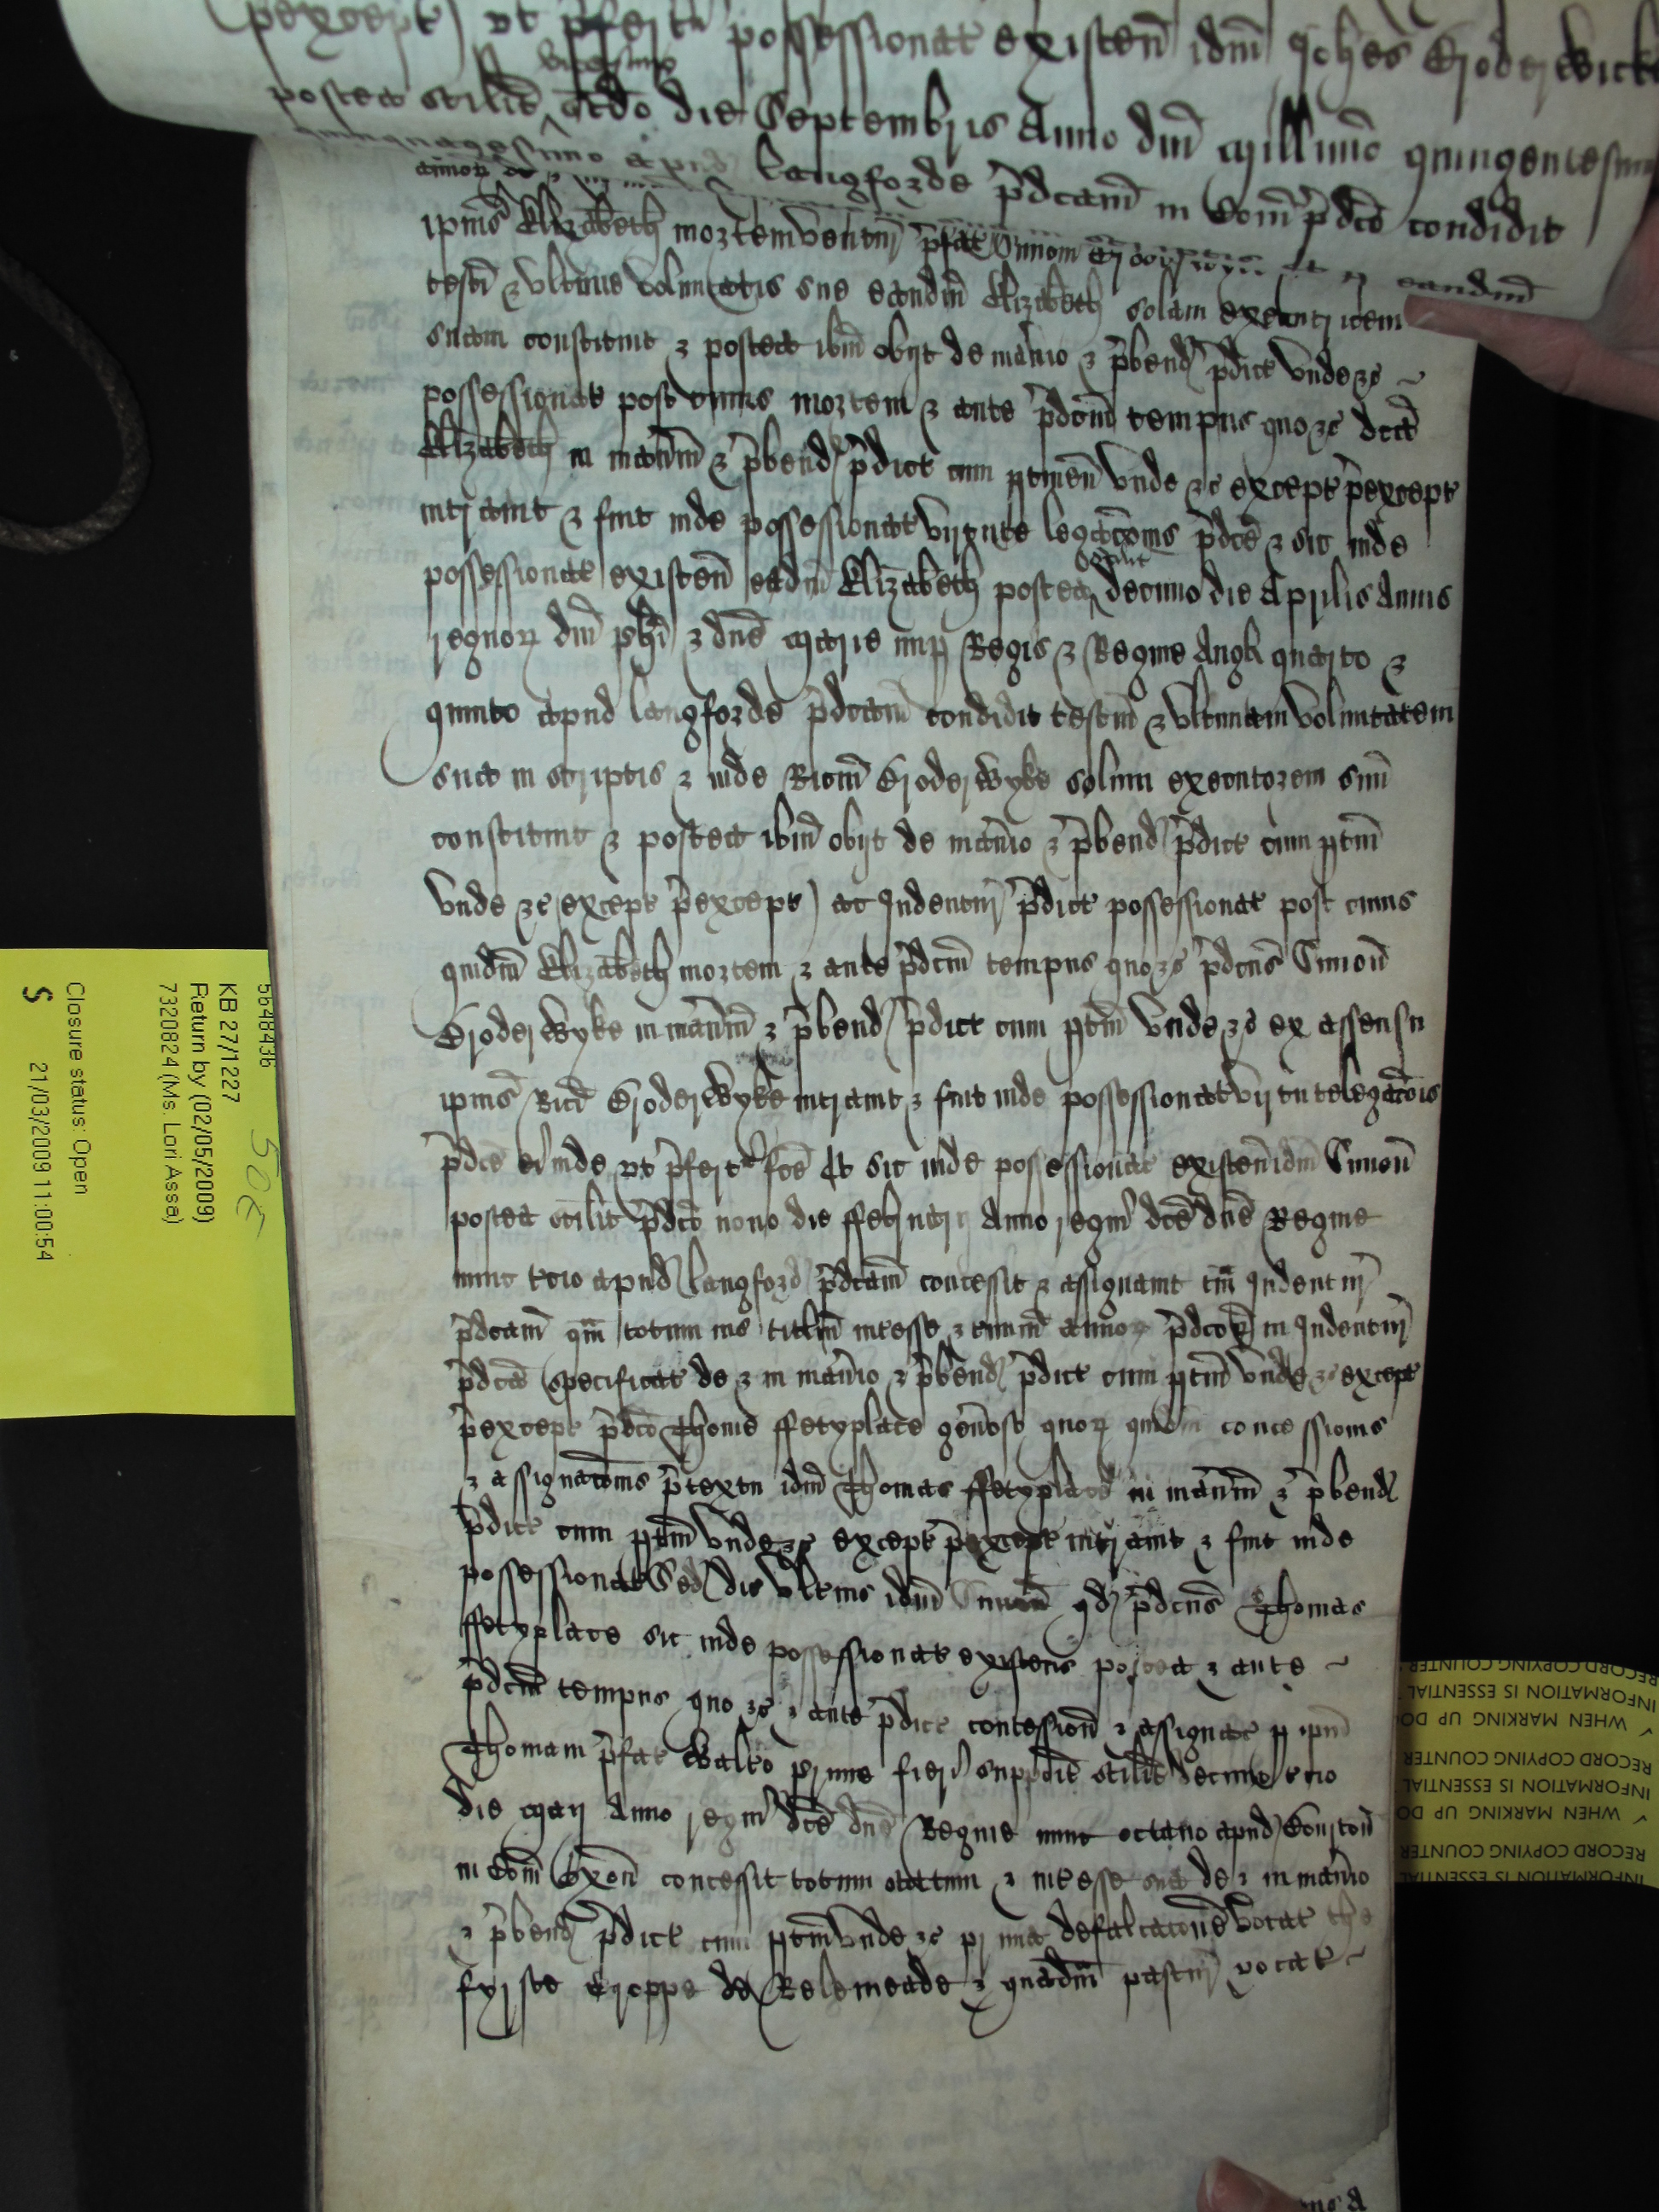 pexcept) ut p̄fert᷑ possessionat existen̄ idm̄ Joh̄es Broderwick
vicesimo
postea scilt̄ sc̄do die Septembris Anno dm̄ Millimō quingentesimo
quinquagesimo apud langforde p̄dcam̄ in Com̄ p̄dcō condidit
ipius Elizabeth mortem ventur̄ p̄fat Simon Broderwyke eandm̄
testi ⁊ ultime voluntatis sue eandm̄ Elizabeth solam executricem
suam constituit ⁊ postea ibm̄ obijt de man̄io ⁊ p̄bend p̄dict unde ⁊c
possessionat post cuius mortem ⁊ ante p̄dcm̄ tempus quo ⁊c dcā
Elizabeth in man̄iū ⁊ p̄bend p̄dict cum ptinen̄ unde ⁊c except p̄except
intravit ⁊ fuit inde possessionat virtute legacōis p̄dcē ⁊ sic inde
possessionat existen̄ eadm̄ Elizabeth postea
scilit
decimo die Aprilis Annis
regnor dm̄ phi ⁊ dn̄e Marie nup Regis ⁊ Regine Angli quarto ⁊
quinto apud langforde p̄dcam̄ condidit testm̄ ⁊ ultimam voluntatem
sua in scriptis ⁊ inde Ricm̄ Broderwyke solum executorem suū
constituit ⁊ postea ibm̄ obijt de man̄io ⁊ p̄bend p̄dict cum ptin̄
unde ⁊c (except p̄except) ac Indentur̄ p̄dict possessionat post cuius
quidm̄ Elizabeth mortem ⁊ ante p̄dcm̄ tempus quo ⁊c p̄dcus Simon̄
Broderwyke in man̄iū ⁊ p̄bend p̄dict cum ptin̄ unde ⁊c ex assensu
ipius Rici Broderwyke intravit ⁊ fuit inde possessionat virtute legacōis
p̄dcē ei inde ut p̄fert᷑ fcē Et sic inde possessionat existen̄ idm̄ Simon̄
postea scilit p̄dcō nono die ffebruarij Anno regni dcē dn̄e Regine
nunc tcio apud langford p̄dcam̄ concessit ⁊ assignavit tam̄ Indentur̄
p̄dcam̄ qm̄ totum ius titlm̄ intesse ⁊ tminū annor p̄dcor in Indentur̄
p̄dcā specificat de ⁊ in man̄io ⁊ p̄bend p̄dict cum ptin̄ unde ⁊c except
p̄except p̄dcō Thome ffetyplace gen̄oso quor quidem concessionis
⁊ assignacōnis p̄textu idm̄ Thomas ffetyplace in man̄iū ⁊ p̄bend
p̄dict cum ptin̄ unde ⁊c except p̄except intravit ⁊ fuit inde
possessionat Sed dic ultius idm̄ Simon̄ qd p̄dcus Thomas
ffetyplace sic inde possessionat existens postea ⁊ ante
p̄dcm̄ tempus quo ⁊c ⁊ ante p̄dict concession̄ ⁊ assignac p ipm̄
Thomam p̄fat Walto prime fieri suppoit scilit decimo tcio
die Maij Anno regni dcē dn̄e Regine nunc octavo apud Courton̄
in Com̄ Oxon̄ concessit totum statum ⁊ intesse sua de ⁊ in man̄io
⁊ p̄bend p̄dict cum ptin̄ unde ⁊c pr una defalcacōne vocat the
fyrste Croppe de Relemeade ⁊ quadm̄ pastur̄ vocat
5648436
KB 27/1227
Return by (02/05/2009)
7320824 (Ms. Lori Assa)
Closure status: Open
S 21/03/2009 11:00:54
RECORD COPYING COUNTER
INFORMATION IS ESSENTIAL
✓ WHEN MARKING UP DO
RECORD COPYING COUNTER
INFORMATION IS ESSENTIAL
✓ WHEN MARKING UP DO
RECORD COPYING COUNTER
INFORMATION IS ESSENTIAL